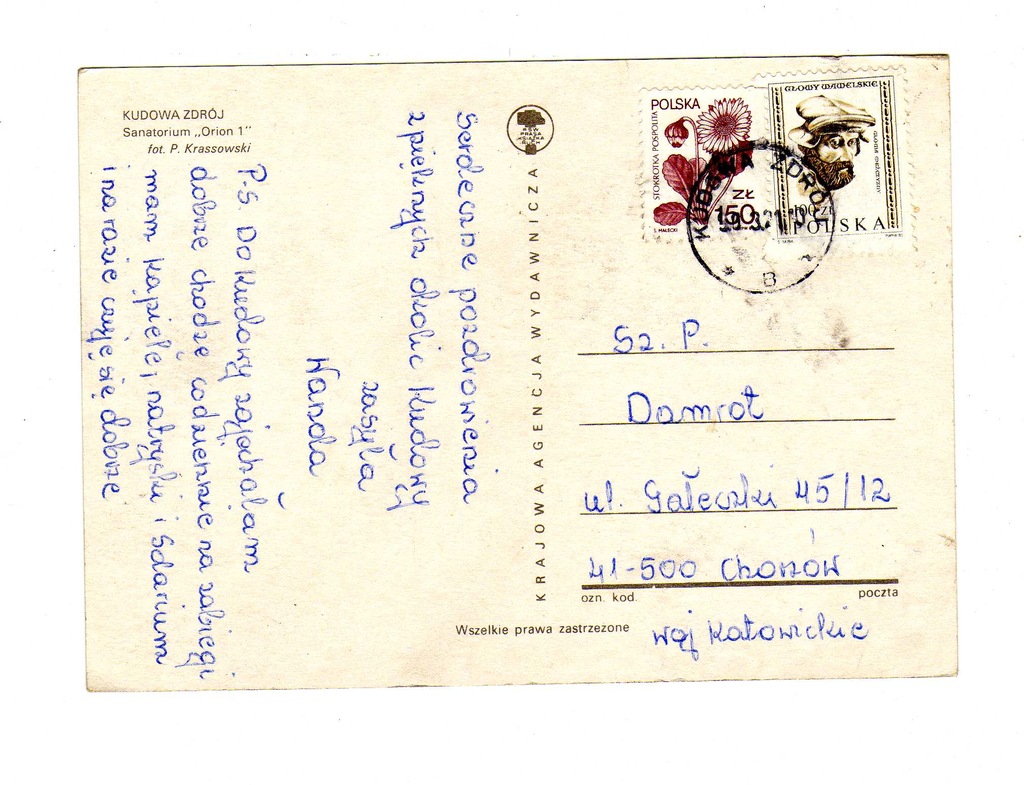 KUDOWA ZDRÓJ
Sanatorium „Orion 1"
fot. P. Krassowski
Serdeczne pozdrowienia
z pięknych okolic Kudowy
zasyła
Wanda
P.S. Do Kudowy zajechałam
dobrze chodzę codziennie na zabiegi
mam kąpiele, natryski i Solarium
i na razie czuję się dobrze
KRAJOWA AGENCJA WYDAWNICZA
RSW
PRASA
KSIĄŻKA
RUCH
POLSKA
STOKROTKA POSPOLITA
ZŁ
150
S. MAŁECKI
GŁOWY WAWELSKIE
100 ZŁ
POLSKA
KUDOWA ZDRÓJ
B
Sz. P.
Damrot
ul. Gałeczki 45/12
41-500 Chorzów
ozn. kod.
poczta
woj Katowickie
Wszelkie prawa zastrzeżone